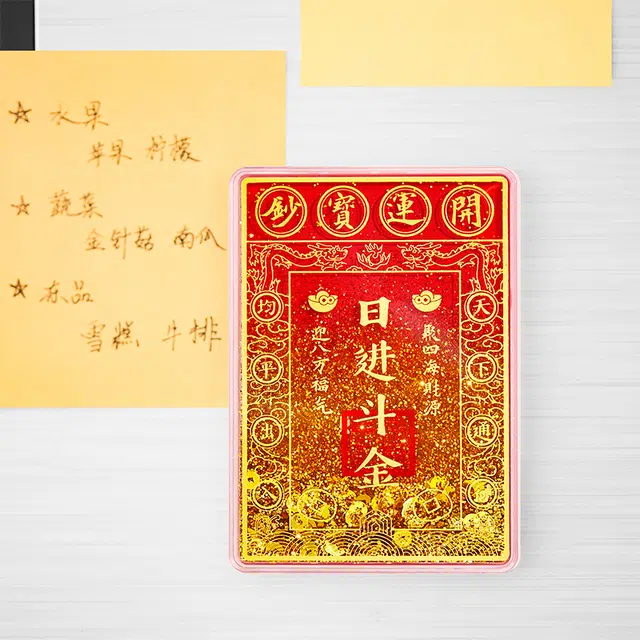 ☆ 水果
苹果 柠檬
☆ 蔬菜
金针菇 南瓜
☆ 冻品
雪糕 牛排
開運寶鈔
天下通
聚四海財源
日进斗金
迎八方福气
均平出入